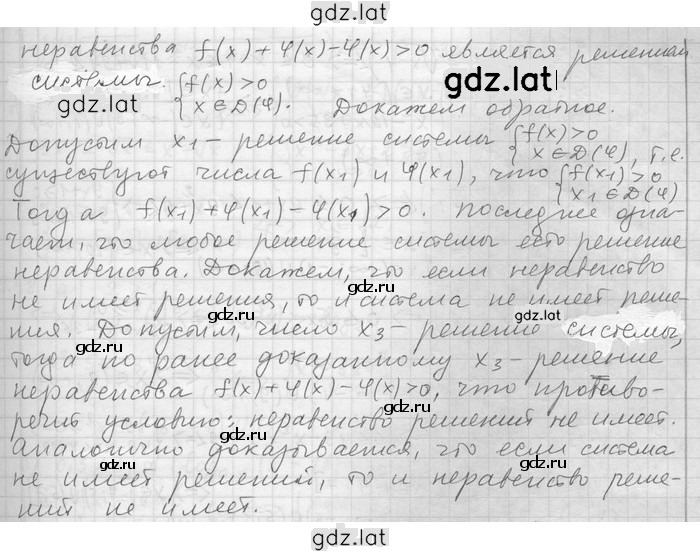 gdz.lat
неравенства f(x)+φ(x)-φ(x)>0 является решением
системы {f(x)>0
gdz.lat
{x∈D(φ). Докажем обратное.
gdz.lat
Допустим x₁-решение системы {f(x)>0
{x∈D(φ), т.е.
существуют числа f(x₁) и φ(x₁), что {f(x₁)>0
{x₁∈D(φ)
Тогда f(x₁)+φ(x₁)-φ(x₁)>0. Последнее озна-
gdz.lat
gdz.lat
чает, что любое решение системы есть решение
неравенства. Докажем, что если неравенство
не имеет решения, то и система не имеет реше-
gdz.lat
gdz.lat
ния. Допустим, число x₃-решение системы,
тогда по ранее доказанному x₃-решение
неравенства f(x)+φ(x)-φ(x)>0, что противо-
gdz.lat
gdz.lat
речит условию: неравенство решений не имеет.
Аналогично доказывается, что если система
gdz.lat
gdz.lat
не имеет решений, то и неравенство реше-
ний не имеет.
gdz.lat